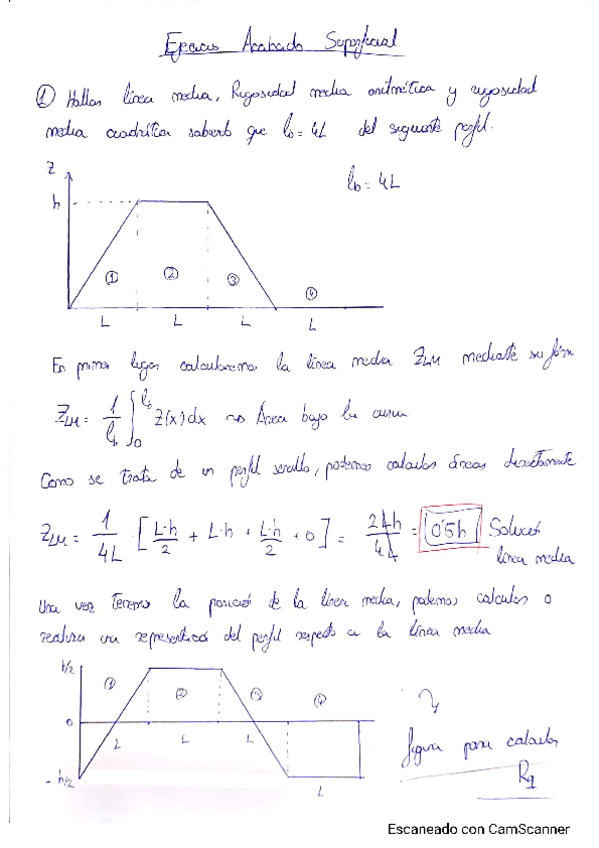 Ejercicios Acabado Superficial
① Hallar línea media, Rugosidad media aritmética y rugosidad
media cuadrática sabiendo que lb = 4L del siguiente perfil.
lb = 4L
Z
h
① ② ③ ④
L L L L
En primer lugar calcularemos la línea media ZLM mediante su fórm
ZLM = 1/lb ∫0^lb Z(x)dx ~> Área bajo la curva
Como se trata de un perfil sencillo, podemos calcular áreas directamente
ZLM = 1/4L · [L·h/2 + L·h + L·h/2 + 0] = 2Lh/4L = 0'5h Solución
línea media
Una vez tenemos la posición de la línea media, podemos calcular o
realizar una representación del perfil respecto a la línea media
h/2
① ② ③ ④
0
L L L
- h/2
L
figura para calcular
Escaneado con CamScanner